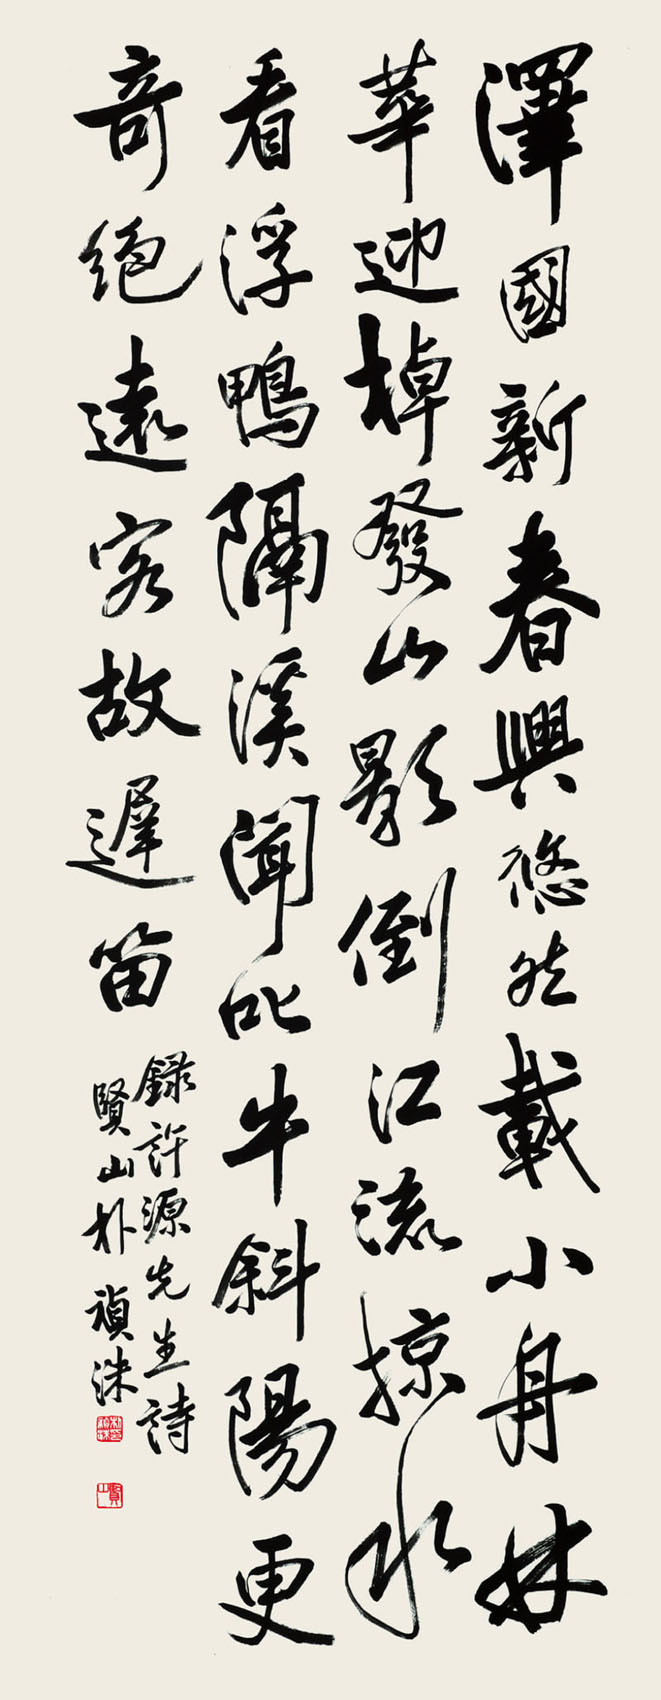 澤國新春興悠然載小舟林
華迎棹發山影倒江流掠水
看浮鴨隔溪聞叱牛斜陽更
奇絕遠客故遲留
錄許源先生詩
賢山朴禎洙